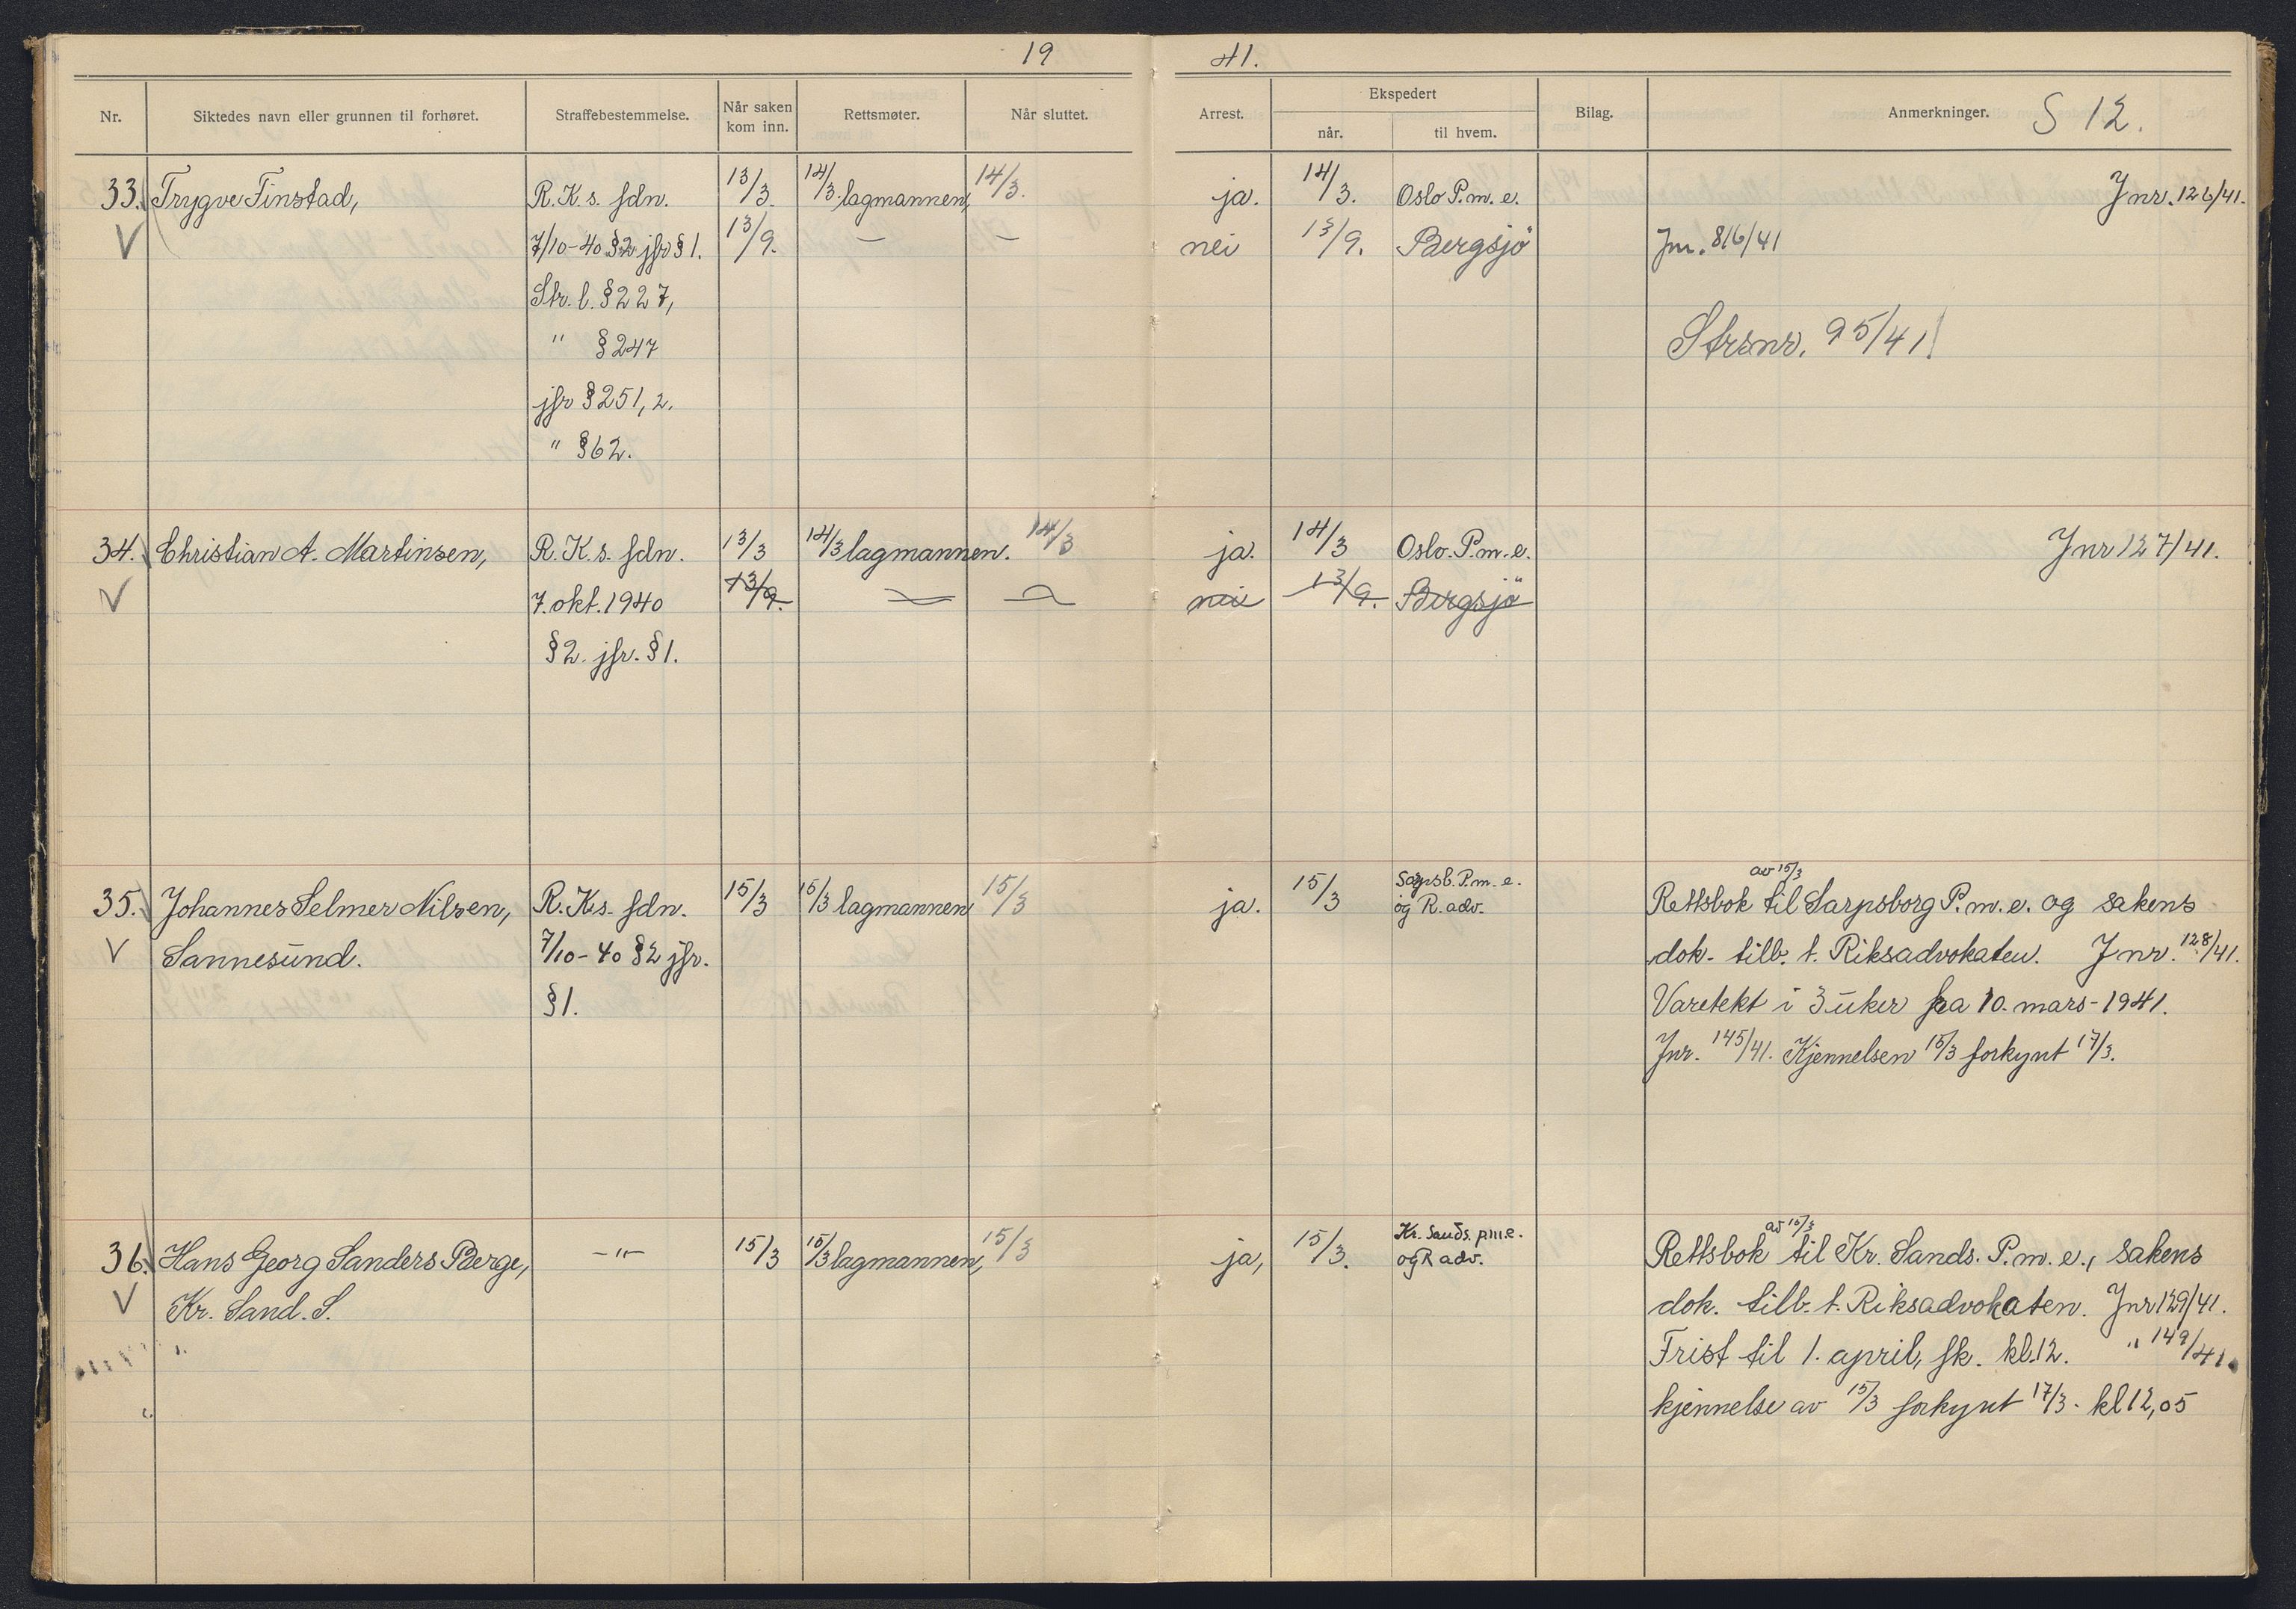 19 41.
Nr. Siktedes navn eller grunnen til forhøret. Straffebestemmelse. Når saken kom inn. Rettsmøter. Når sluttet. Arrest. Ekspedert når. til hvem. Bilag. Anmerkninger. S 12.
33. Trygve Finstad, R.K.s. fdn. 13/3. 14/3. lagmannen, 14/3. ja. 14/3. Oslo P.m.e. Jnr. 126/41.
V 7/10-40 §2 jfr §1. 13/9. — — nei 13/9. Bergsjö Jnr. 816/41
Str. l. §227,
" §247 Strsnr. 95/41
jfr §251, 2.
" §62.
34. Christian A. Martinsen, R.K.s. fdn. 13/3 14/3 lagmannen. 14/3 ja. 14/3 Oslo. P.m.e. Jnr 127/41.
V 7. okt. 1940 13/9. — — nei 13/9. Bergsjö
§2. jfr. §1.
35. Johannes Selmer Nilsen, R.K.s. fdn. 15/3 15/3 lagmannen 15/3 ja. 15/3 Sarpsb. P.m.e. og R. adv. Rettsbok av 15/3 til Sarpsborg P.m.e. og sakens
V Sannesund. 7/10-40 §2 jfr. dok. tilb. t. Riksadvokaten. Jnr. 128/41.
§1. Varetekt i 3 uker fra 10. mars-1941.
Jnr. 145/41. Kjennelsen 15/3 forkynt 17/3.
36. Hans Georg Sanders Berge, -"- 15/3 15/3 lagmannen, 15/3 ja, 15/3. Kr. Sands. p.m.e. og R adv. Rettsbok av 15/3 til Kr. Sands. P.m.e., sakens
V Kr. Sand. S. dok. tilb. t. Riksadvokaten. Jnr 129/41.
Frist til 1. april, fk. kl. 12. " 149/41.
kjennelse av 15/3 forkynt 17/3. kl 12,05